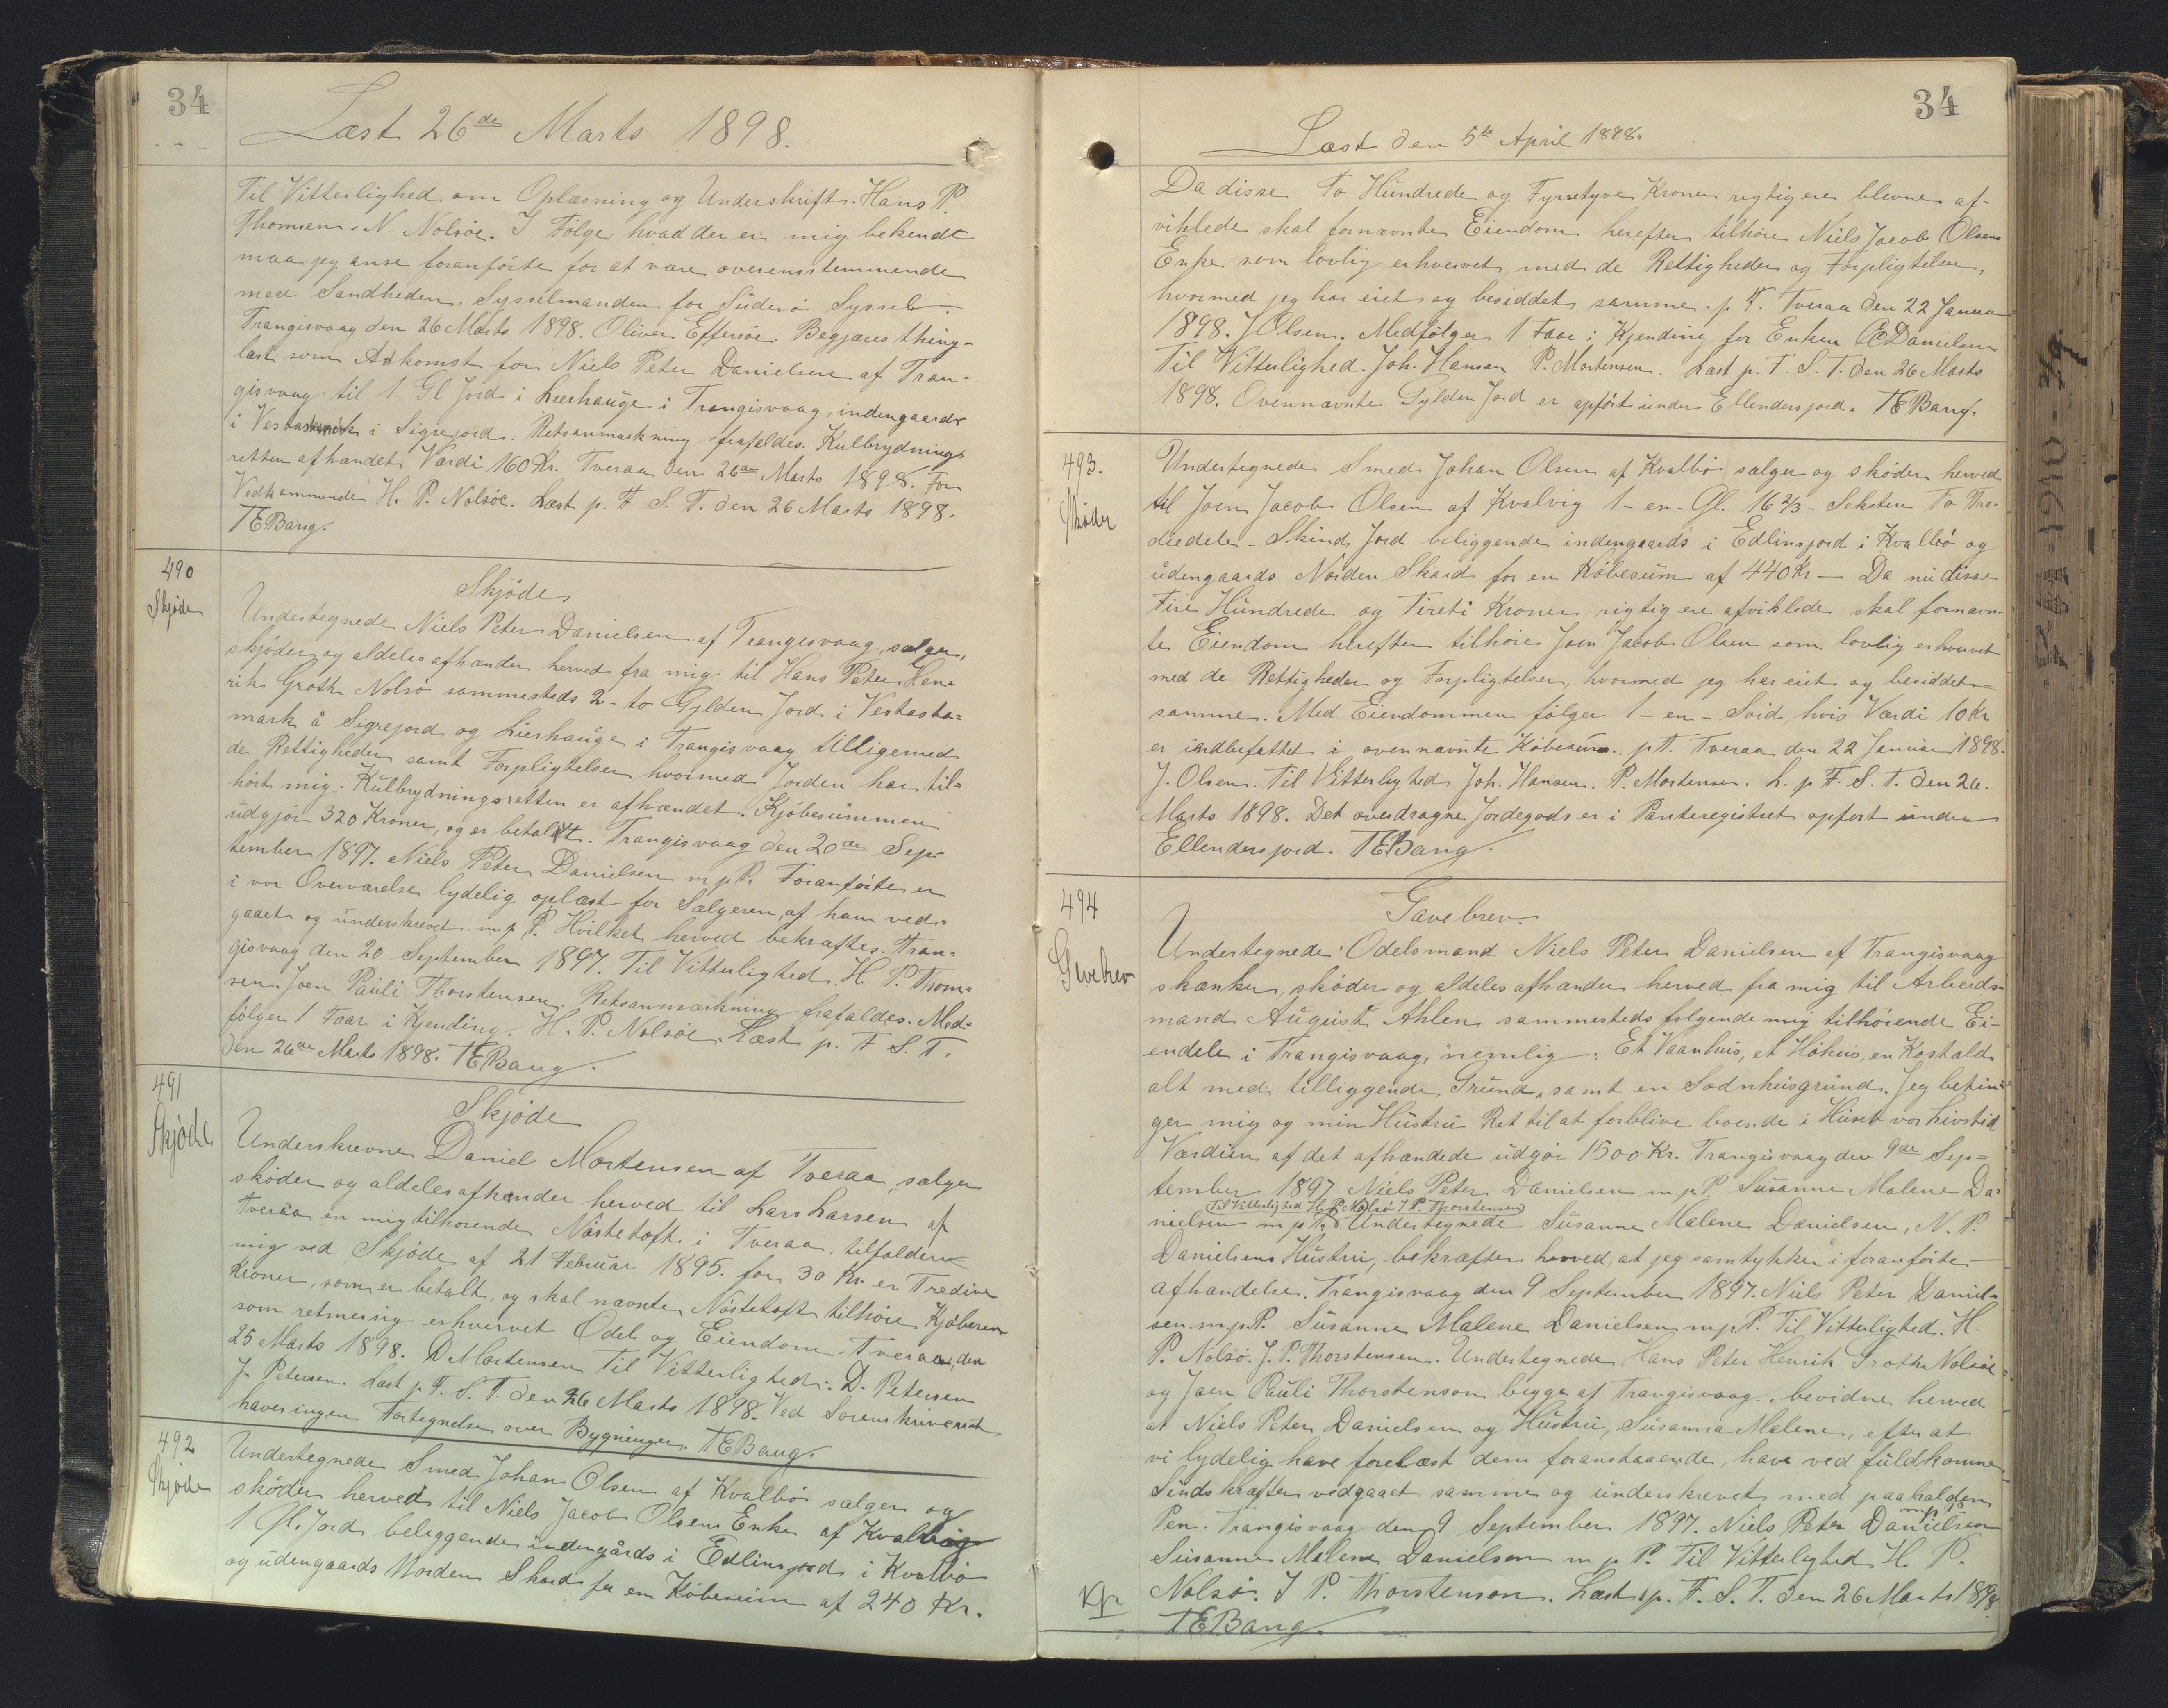 34
Læst 26de Marts 1898.
Til Vitterlighed om Oplæsning og Underskrift. Hans P.
Thomsen. N. Nolsöe. I Følge hvad der er mig bekendt
maa jeg anse foranförte for at være overensstemmende
med Sandheden. Sysselmanden for Süderö Syssel.
Trangisvaag den 26 Marts 1898. Oliver Effersöe. Begjæres thing-
læst som Adkomst for Niels Peter Danielsen af Tran-
gisvaag til 1 Gl Jord i Lierhauge i Trangisvaag, indengaards
i Sigrejord. Retsanmærkning frafaldes. Kulbrydnings
retten afhændet. Værdi 160 Kr. Tveraa den 26de Marts 1898. For
Vedkommende H. P. Nolsöe. Læst p. F. S. T. den 26 Marts 1898.
TEBang.
490
Skjöde
Skjöde
Undertegnede Niels Peter Danielsen af Trangisvaag, sælger,
skjöder og aldeles afhænder herved fra mig til Hans Peter Hen-
rik Groth Nolsö sammesteds 2 - to Gylden Jord i Vestasta=
mark å Sigrejord og Lierhauge i Trangisvaag tilligemed
de Rettigheder samt Forpligtelser hvormed Jorden har til=
hört mig. Kulbrydningsretten er afhændet. Kjöbesümmen
üdgjör 320 Kroner, og er betalt. Trangisvaag den 20de Sep-
tember 1897. Niels Peter Danielsen m.p.P. Foranförte er
i vor Overværelse lydelig oplæst for Sælgeren, af ham ved-
gaaet og ünderskrevet m.p P. Hvilket herved bekræftes. Tran=
gisvaag den 20 September 1897. Til Vitterlighed. H. P. Thom=
sen. Joen Pauli Thorstensen. Retsanmærkning frafaldes. Med-
fölger 1 Faar i Kjending. H. P. Nolsöe. Læst p. F S. T.
den 26de Marts 1898. TEBang.
491
Skjöde
Skjöde
Underskrevne Daniel Mortensen af Tveraa sælger
sköder og aldeles afhænder herved til Lars Larsen af
Tveraa en mig tilhörende Nöstetoft i Tveraa, tilfalden
mig ved Skjöde af 21 Februar 1895. for 30 Kr er Tredive
Kroner, som er betalt, og skal nævnte Nöstetoft tilhöre Kjöberen
som retmessig erhvervet Odel og Eiendom. Tveraa den
25 Marts 1898. D Mortensen Til Vitterlighed: D. Petersen
J. Petersen. Læst p. F. S. T. den 26 Marts 1898. Ved Sorenskriveriet
haves ingen Fortegnelse over Bygninger. TEBang.
492
Skjöde
Undertegnede Smed Johan Olsen af Kvalbö sælger og
sköder herved til Niels Jacob Olsens Enke af Kvalbög
1 Gl. Jord beliggende indengårds i Edlinsjord i Kvalbö
og üdengaards Norden Skard for en Köbesüm af 240 Kr.
34
Læst den 5te April 1898.
Da disse To Hündrede og Fyrretyve Kroner rigtig ere blevne af-
viklede skal fornævnte Eiendom herefter tilhöre Niels Jacob Olsens
Enke som lovlig erhvervet med de Rettigheder og Forpligtelser,
hvormed jeg har eiet og besiddet samme. p. T. Tveraa den 22 Januar
1898. J Olsen. Medfölger 1 Faar i Kjending for Enken Danielsen
Til Vitterlighed. Joh. Hansen P. Mortensen. Læst p. F. S. T. den 26 Marts
1898. Ovennævnte Gylden Jord er opfört ünder Ellendersjord. TEBang.
493.
Sköder
Undertegnede Smed Johan Olsen af Kvalbö sælger og sköder herved
til Joen Jacob Olsen af Kvalvig 1 - en - Gl. 16 2/3 - Seksten To Tre-
diedele - Skind Jord beliggende indengaards i Edlinsjord i Kvalbö og
üdengaards Norden Skard for en Köbesüm af 440 Kr — Da nü disse
Fire Hündrede og Fireti Kroner rigtig ere afviklede skal fornævn-
te Eiendom herefter tilhöre Joen Jacob Olsen som lovlig erhvervet
med de Rettigheder og Forpligtelser, hvormed jeg har eiet og besiddet
samme. Med Eiendommen fölger 1 - en - Soid, hvis Værdi 10 Kr
er indbefattet i ovennævnte Köbesüm. p.T. Tveraa den 22 Januar 1898.
J. Olsen. Til Vitterlighed Joh. Hansen. P. Mortensen. L. p F. S. T. den 26.
Marts 1898. Det overdragne Jordegods er i Panteregistret opfört ünder
Ellendersjord. TEBang.
494
Gavebrev
Gavebrev.
Undertegnede Odelsmand Niels Peter Danielsen af Trangisvaag
skænker, sköder og aldeles afhænder herved fra mig til Arbeids-
mand Augüist Ahlen sammesteds fölgende mig tilhörende Ei-
endele i Trangisvaag, nemlig: Et Vaanhüs, et Höhüs, en Kostald
alt med tilliggende Gründ, samt en Sodnhüsgründ. Jeg betin-
ger mig og min Hüstrü Ret til at forblive boende i Hüset vor Livstid
Værdien af det afhændede üdgör 1500 Kr. Trangisvaag den 9de Sep=
tember 1897 Niels Peter Danielsen m.p.P. Süsanne Malene Da=
Til Vitterlighed H. P. Nolsö J P. Thorstensen
nielsen m p P. Undertegnede Süsanne Malene Danielsen, N. P.
Danielsens Hüstrü, bekræfter herved, at jeg samtykker i foranförte
afhændelse. Trangisvaag den 9 September 1897. Niels Peter Daniel-
sen. m.p.P. Süsanne Malene Danielsen m.p P. Til Vitterlighed. H.
P. Nolsö. J. P. Thorstensen. Undertegnede Hans Peter Henrik Groth Nolsöe
og Joen Pauli Thorstenson begge af Trangisvaag, bevidne herved
at Niels Peter Danielsen og Hüstrü, Süsanna Malene, efter at
vi lydelig have forelæst dem foranstaaende, have ved füldkomne
Sindskræfter vedgaaet samme og ünderskrevet med paaholden
Pen. Trangisvaag den 9 September 1897. Niels Peter Danielsen
m.p.P.
Süsanne Malene Danielsen m p P. Til Vitterlighed H. P.
Nolsö. J P. Thorstenson. Læst p. F. S. T. den 26 Marts 1898
TEBang.